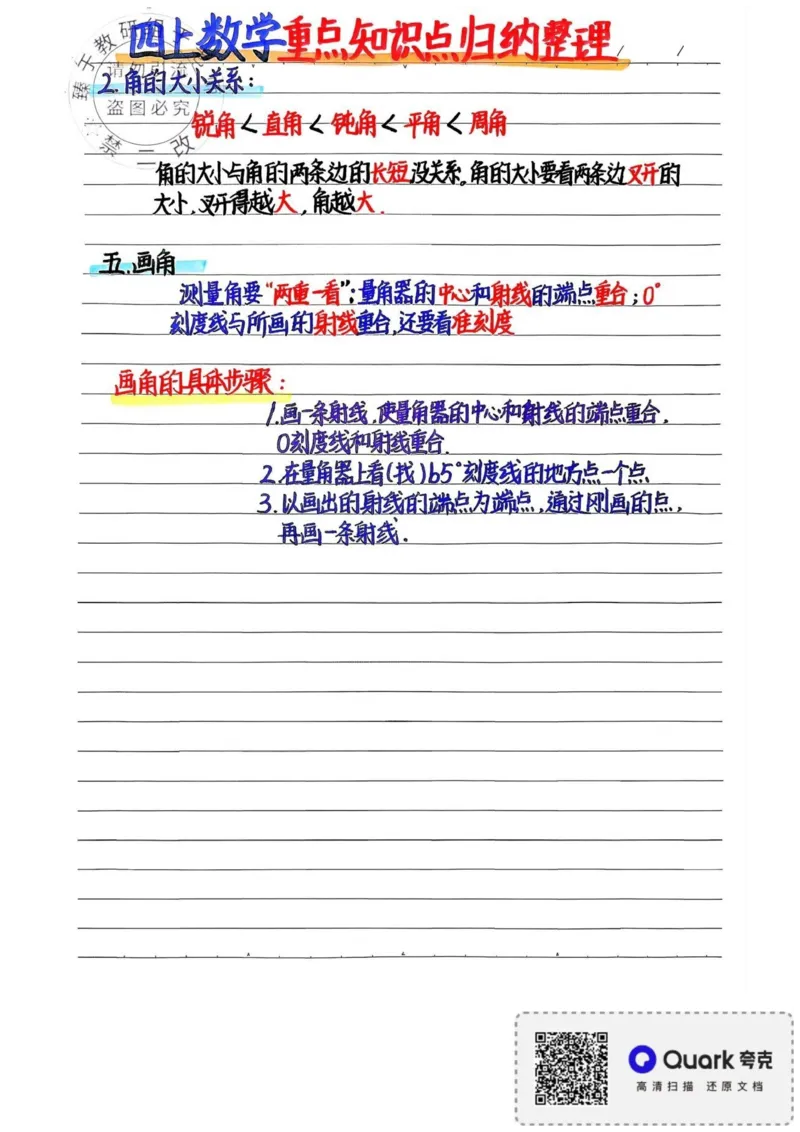 四上数学重点知识点归纳整理
2.角的大小关系:
锐角<直角<钝角<平角<周角
角的大小与角的两条边的长短没关系。角的大小要看两条边叉开的
大小,叉开得越大,角越大.
五.画角
测量角要“两重一看”:量角器的中心和射线的端点重合;0°
刻度线与所画的射线重合,还要看准刻度
画角的具体步骤:
1.画一条射线,使量角器的中心和射线的端点重合,
0刻度线和射线重合.
2.在量角器上看(找)65°刻度线的地方点一个点.
3.以画出的射线的端点为端点,通过刚画的点,
再画一条射线.
盗图必究
Quark夸克
高清扫描 还原文档